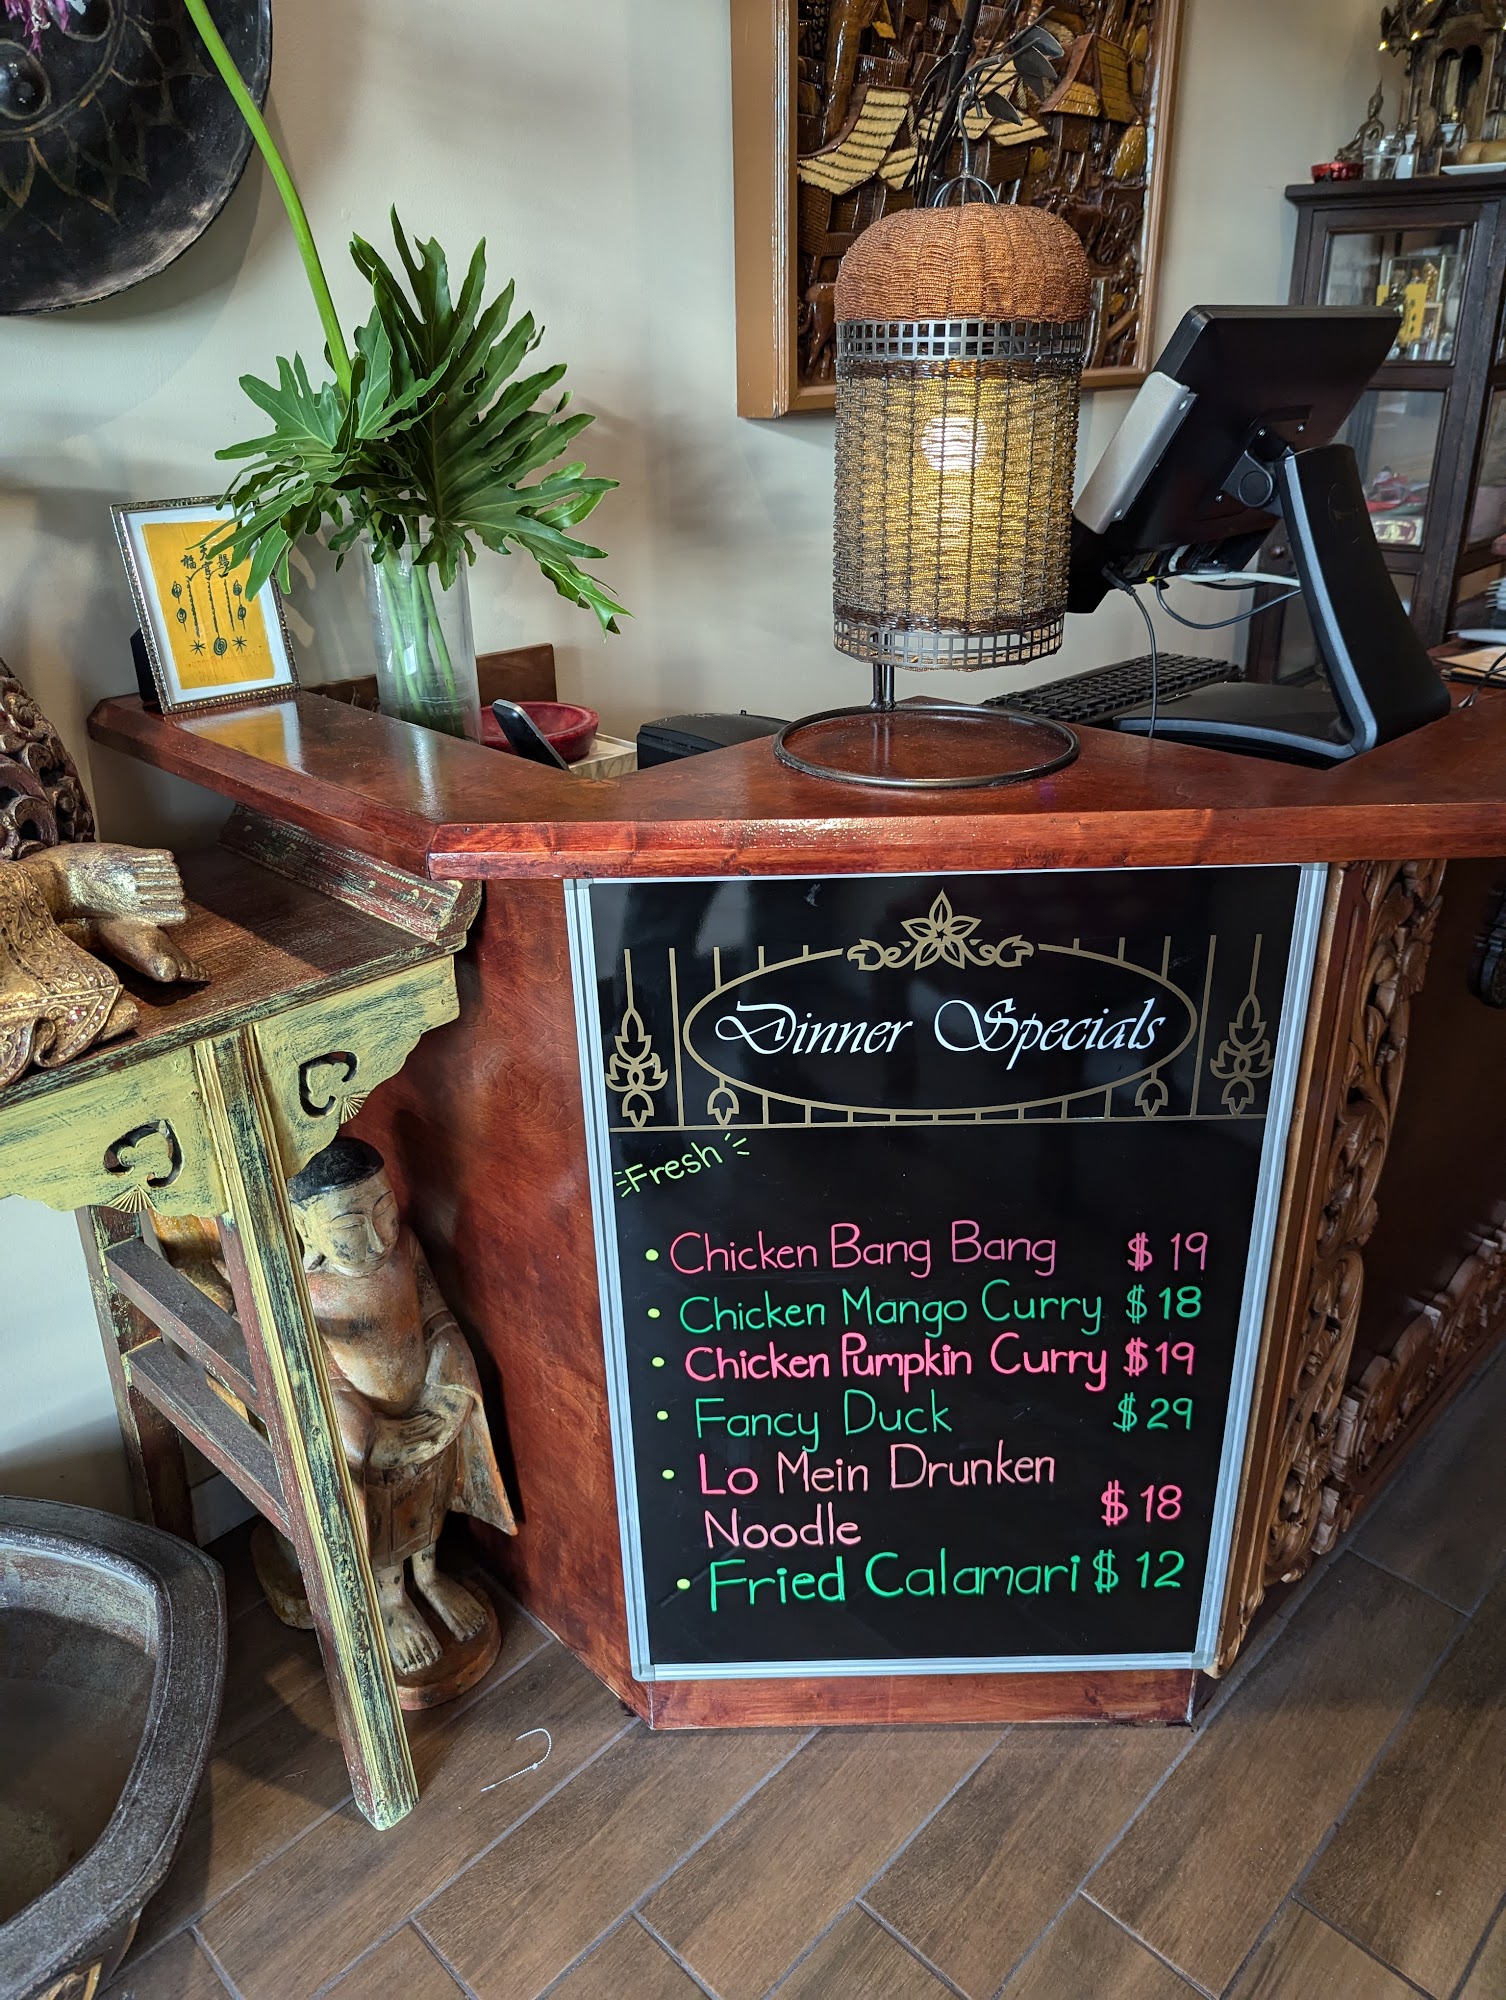 天官賜福
Dinner Specials
Fresh
• Chicken Bang Bang $19
• Chicken Mango Curry $18
• Chicken Pumpkin Curry $19
• Fancy Duck $29
• Lo Mein Drunken
Noodle $18
• Fried Calamari $12